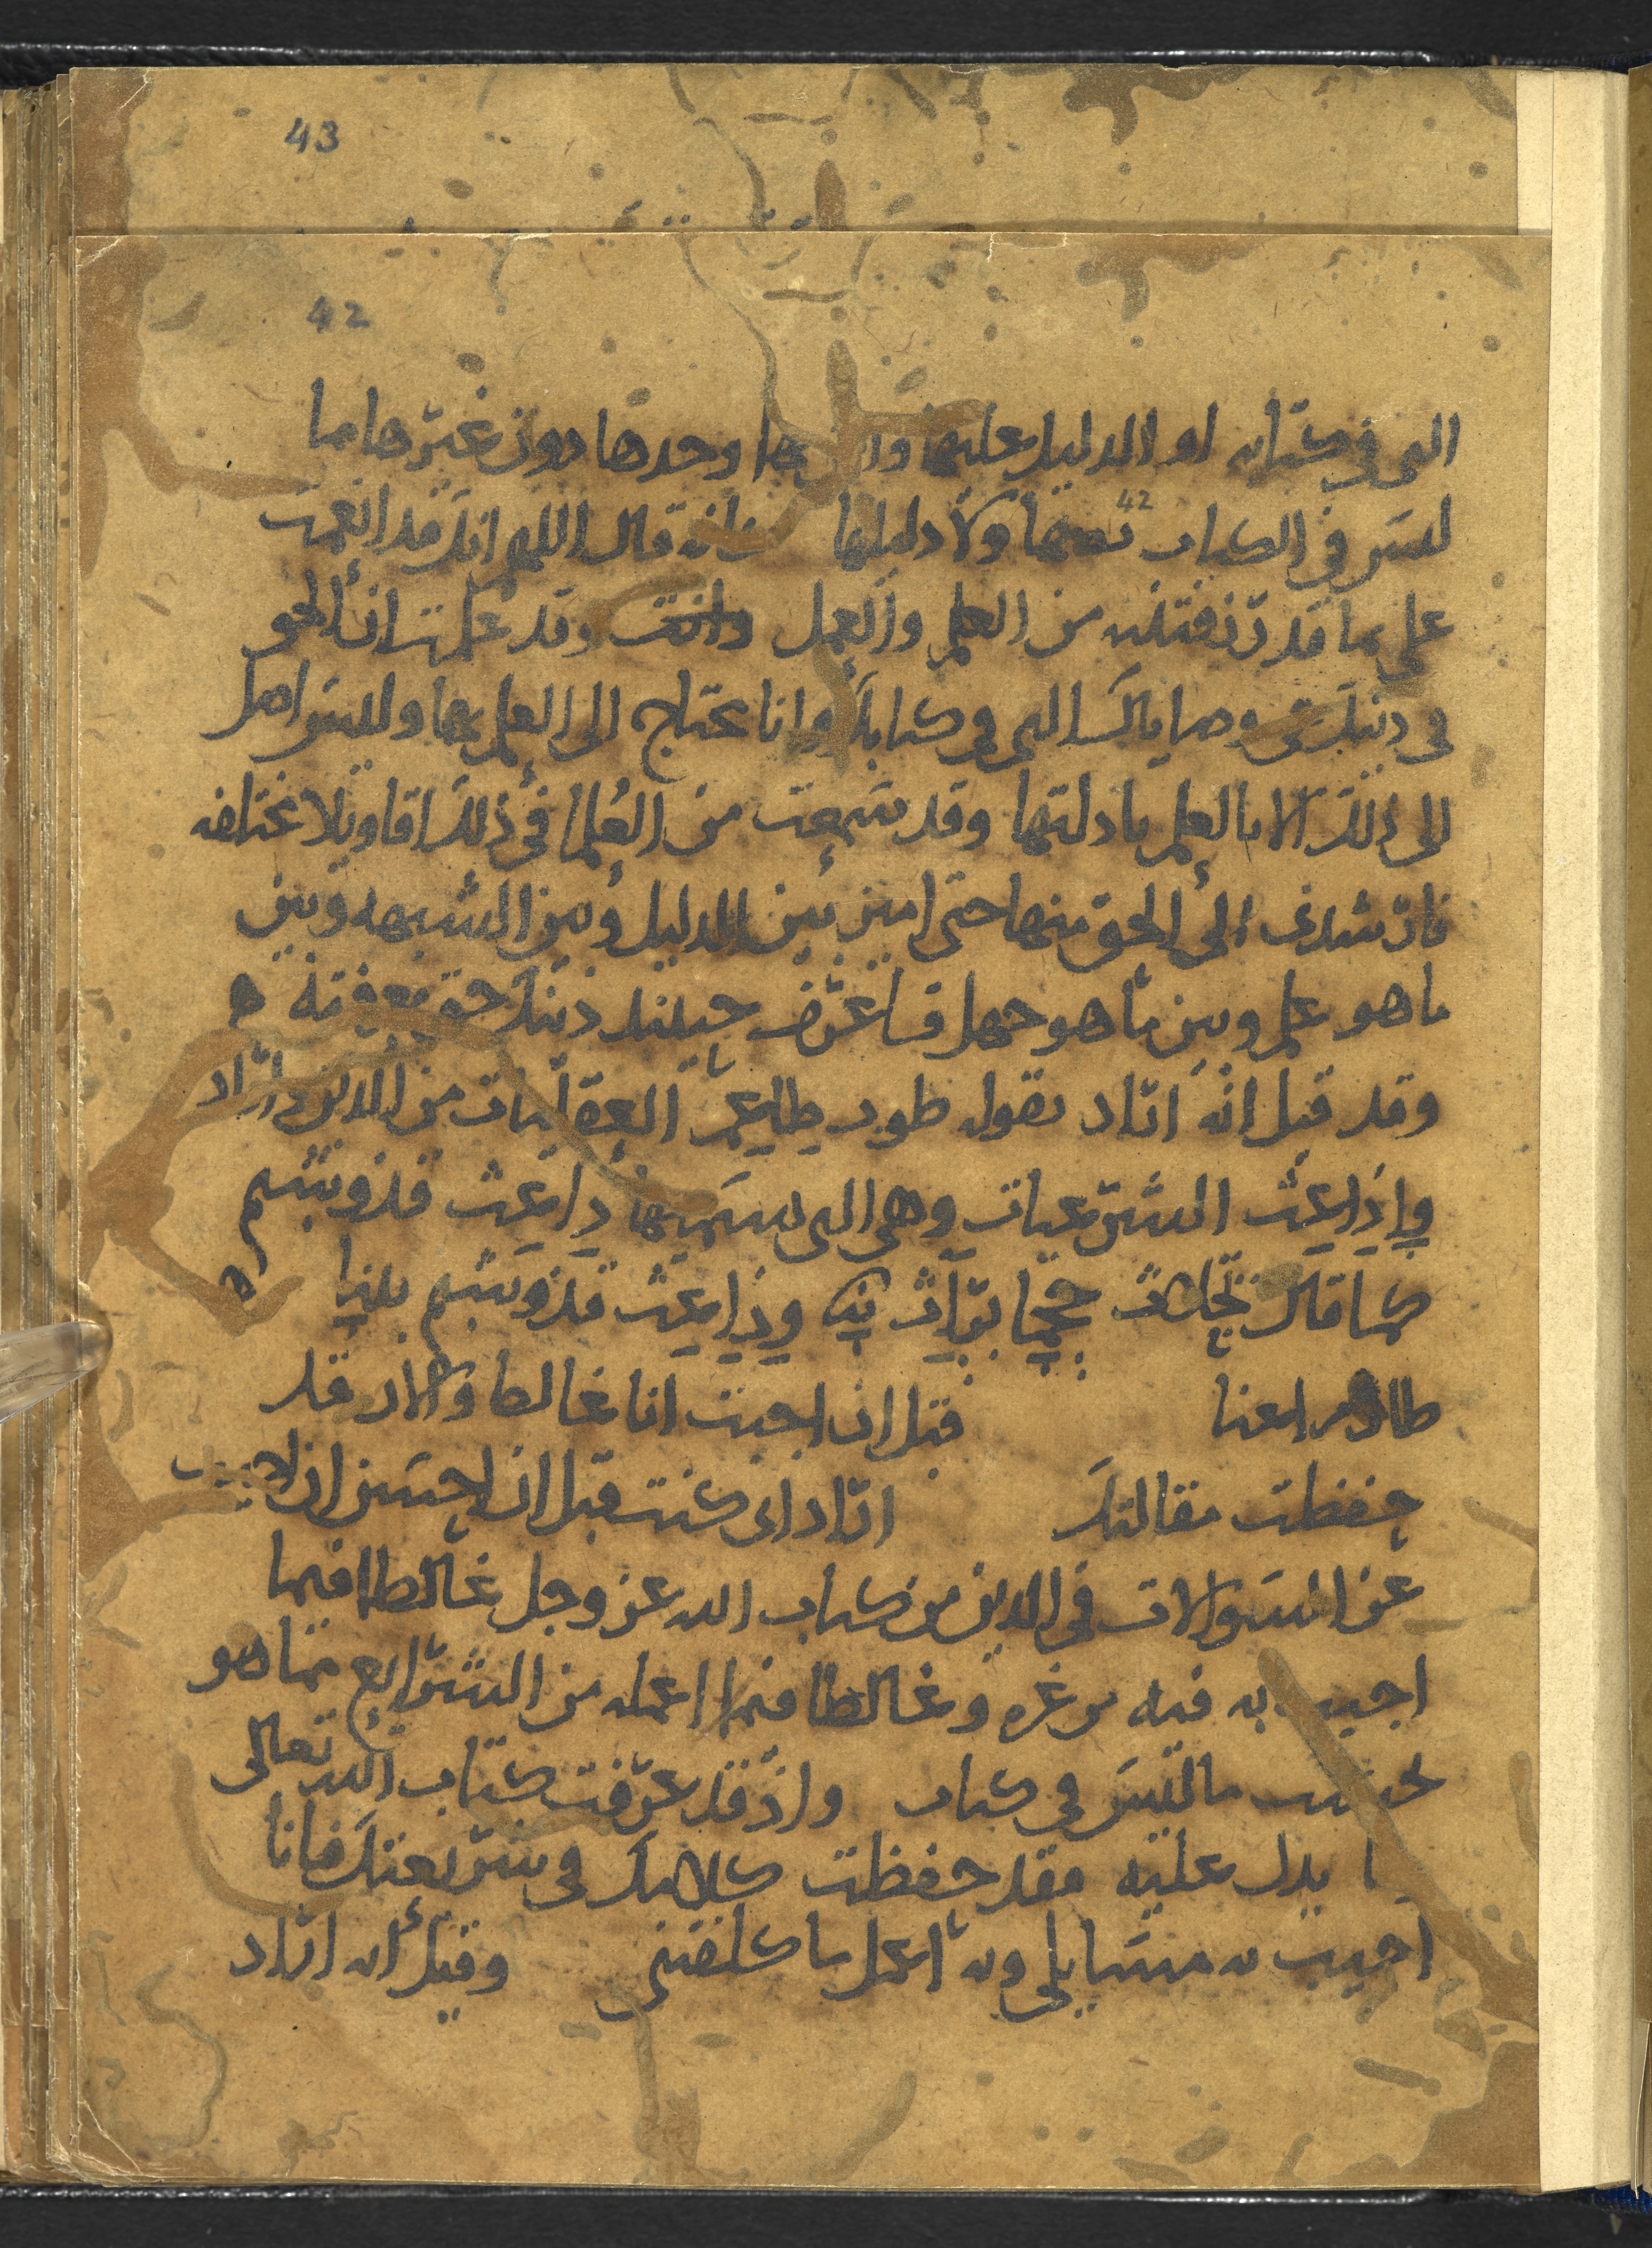 43
42
التى فى كتابه او الدليل عليها وحدها دون غيرها مما
42
ليس فى الكتاب نصها ولا دليلها فانه قال اللهم انك قد انعمت
على بما قد رزقتنيه من العلم والعمل وقد علمت ان الحق
فى دينك هى وصاياك التى فى كتابك وانا محتاج الى العلم بها وليس اصل
الى ذلك الا بالعلم بادلتها وقد سمعت من العلما فى ذلك اقاويلا مختلفه
فارشدنى الى الحق منها حتى اميز بين الدليل وبين الشبهه وبين
ما هو علم وبين ما هو جهل فاعرف حينئذ دينك حق معرفته ه
وقد قيل انه اراد بقوله طوب طاعم العقليات من الدين واراد
وداعث الشرعيات وهى التى يسميها داعث قذوشيم
كما قال وداعث قذوشيم
قبل ان اجبت انا غالطا والان قد
حفظت مقالتك اراد انى كنت قبل ان احسن ان اجيب
عن السوالات فى الدين من كتاب الله عز وجل غالطا فيما
اجيب به فيه من غيره وغالطا فيما اعمله من الشرايع مما هو
ما ليس فى كتاب واذ قد عرفت كتاب الله تعالى
يدل عليه فقد حفظت كلامك فى شريعتك فانا
اجيب به مسايلى وبه اعمل ما كلفتنى وقيل انه اراد